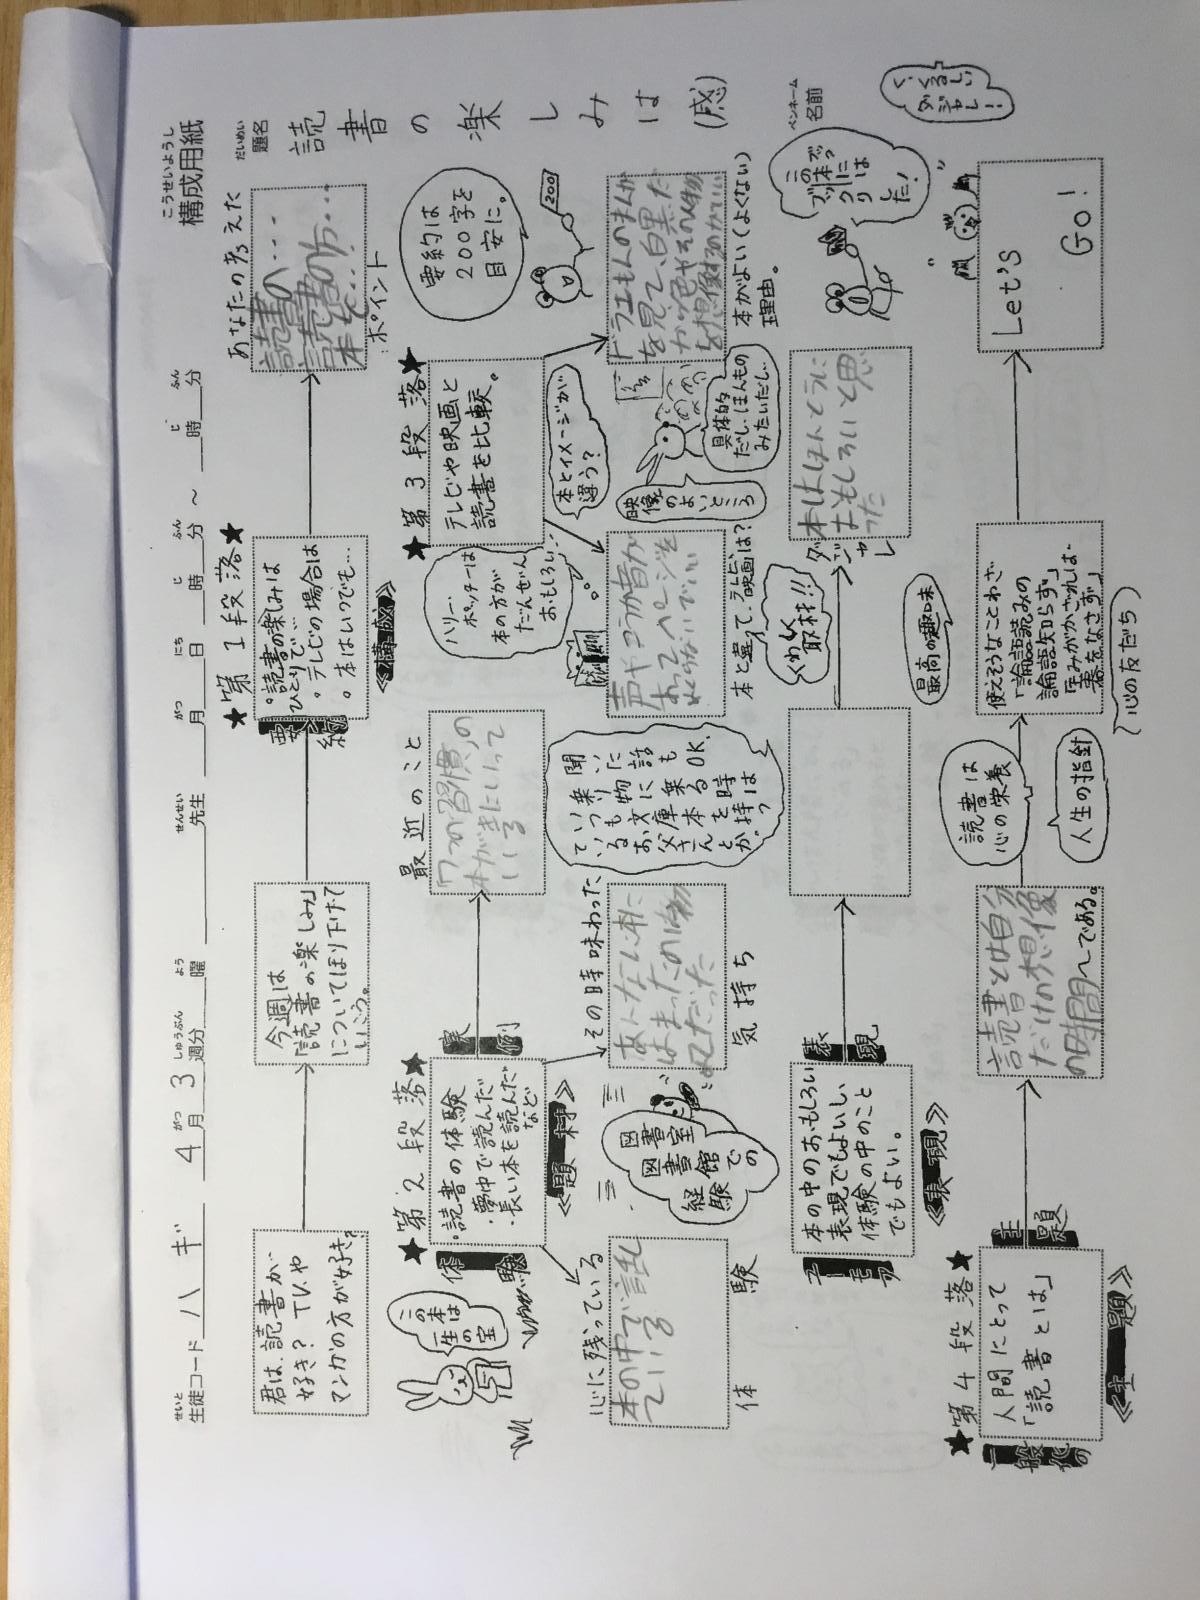 こうせいようし
構成用紙
せいと
生徒コード ハギ 4月3週分 曜 先生 月 日 時 分 ～ 時 分
がつ しゅうぶん よう せんせい がつ にち じ ふん じ ふん
だいめい
題名
読書の楽しみは(感)
ペンネーム
名前
君は、読書が
好き？ TVや
マンガの方が好き？
今週は
「読書の楽しみ」
についてほり下げて
いこう。
★第1段落★
要約
。読書の楽しみは
ひとりで…
。テレビの場合は
。本はいつでも…
《構成》
あなたの考えた
読書の…
読書の
ポイント
要約は
200字を
目安に。
200
★第2段落★
体験
・読書の体験
・夢中で読んだ
・長い本を読んだ
など
《題材》
実例
最近のこと
「7つの習慣」の
本がすきにいって
いる
この本は
一生の
宝
心に残っている
本の中で話し
ている
体験
図書室
図書館での
経験
その時味わった
気持ち
聞いた話もOK。
乗り物に乗る時
いつも文庫本を
持っているお父さんとかは？
★第3段落★
テレビや映画と
読書を比較。
ハリー・
ポッターは
本の方が
だんぜん
おもしろい…
本とイメージが
違う？
映像の
よいところ
具体的
だし、ほんもの
みたいだし…
声やコウカ音が
あって
本と異って、テレビ、映画は？
ドラエもんのまんが
を見て、白黒だ
から色やその人物
を想像するのがたのしい
本がよい(よくない)
理由。
くわしく
取材!!
ユーモア
本の中のおもしろい
表現でもよいし
体験の中のこと
でもよい。
《表現》
表現
ダジャレ
本はほんとうに
おもしろいと思
った
この本
ブックに
ビックリ
だ！
く、くるしい
ダジャレ！
★第4段落★
一般化の
主題
人間にとって
「読書とは」
《主題》
読書とは自分
だけの想像
の時間
～である。
読書は
心の栄養
人生の指針
最高の趣味
心の友だち
使えそうなことわざ
「論語読みの
論語知らず」
Let's
Go!